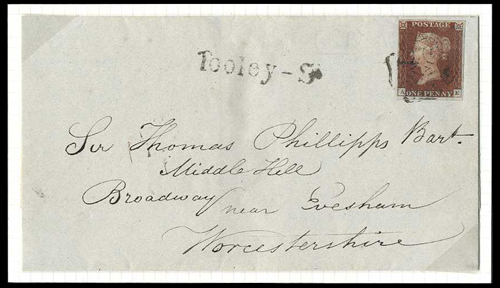 POSTAGE
ONE PENNY
Tooley-St
Sir Thomas Phillipps Bart.
Middle Hill
Broadway near Evesham
Worcestershire